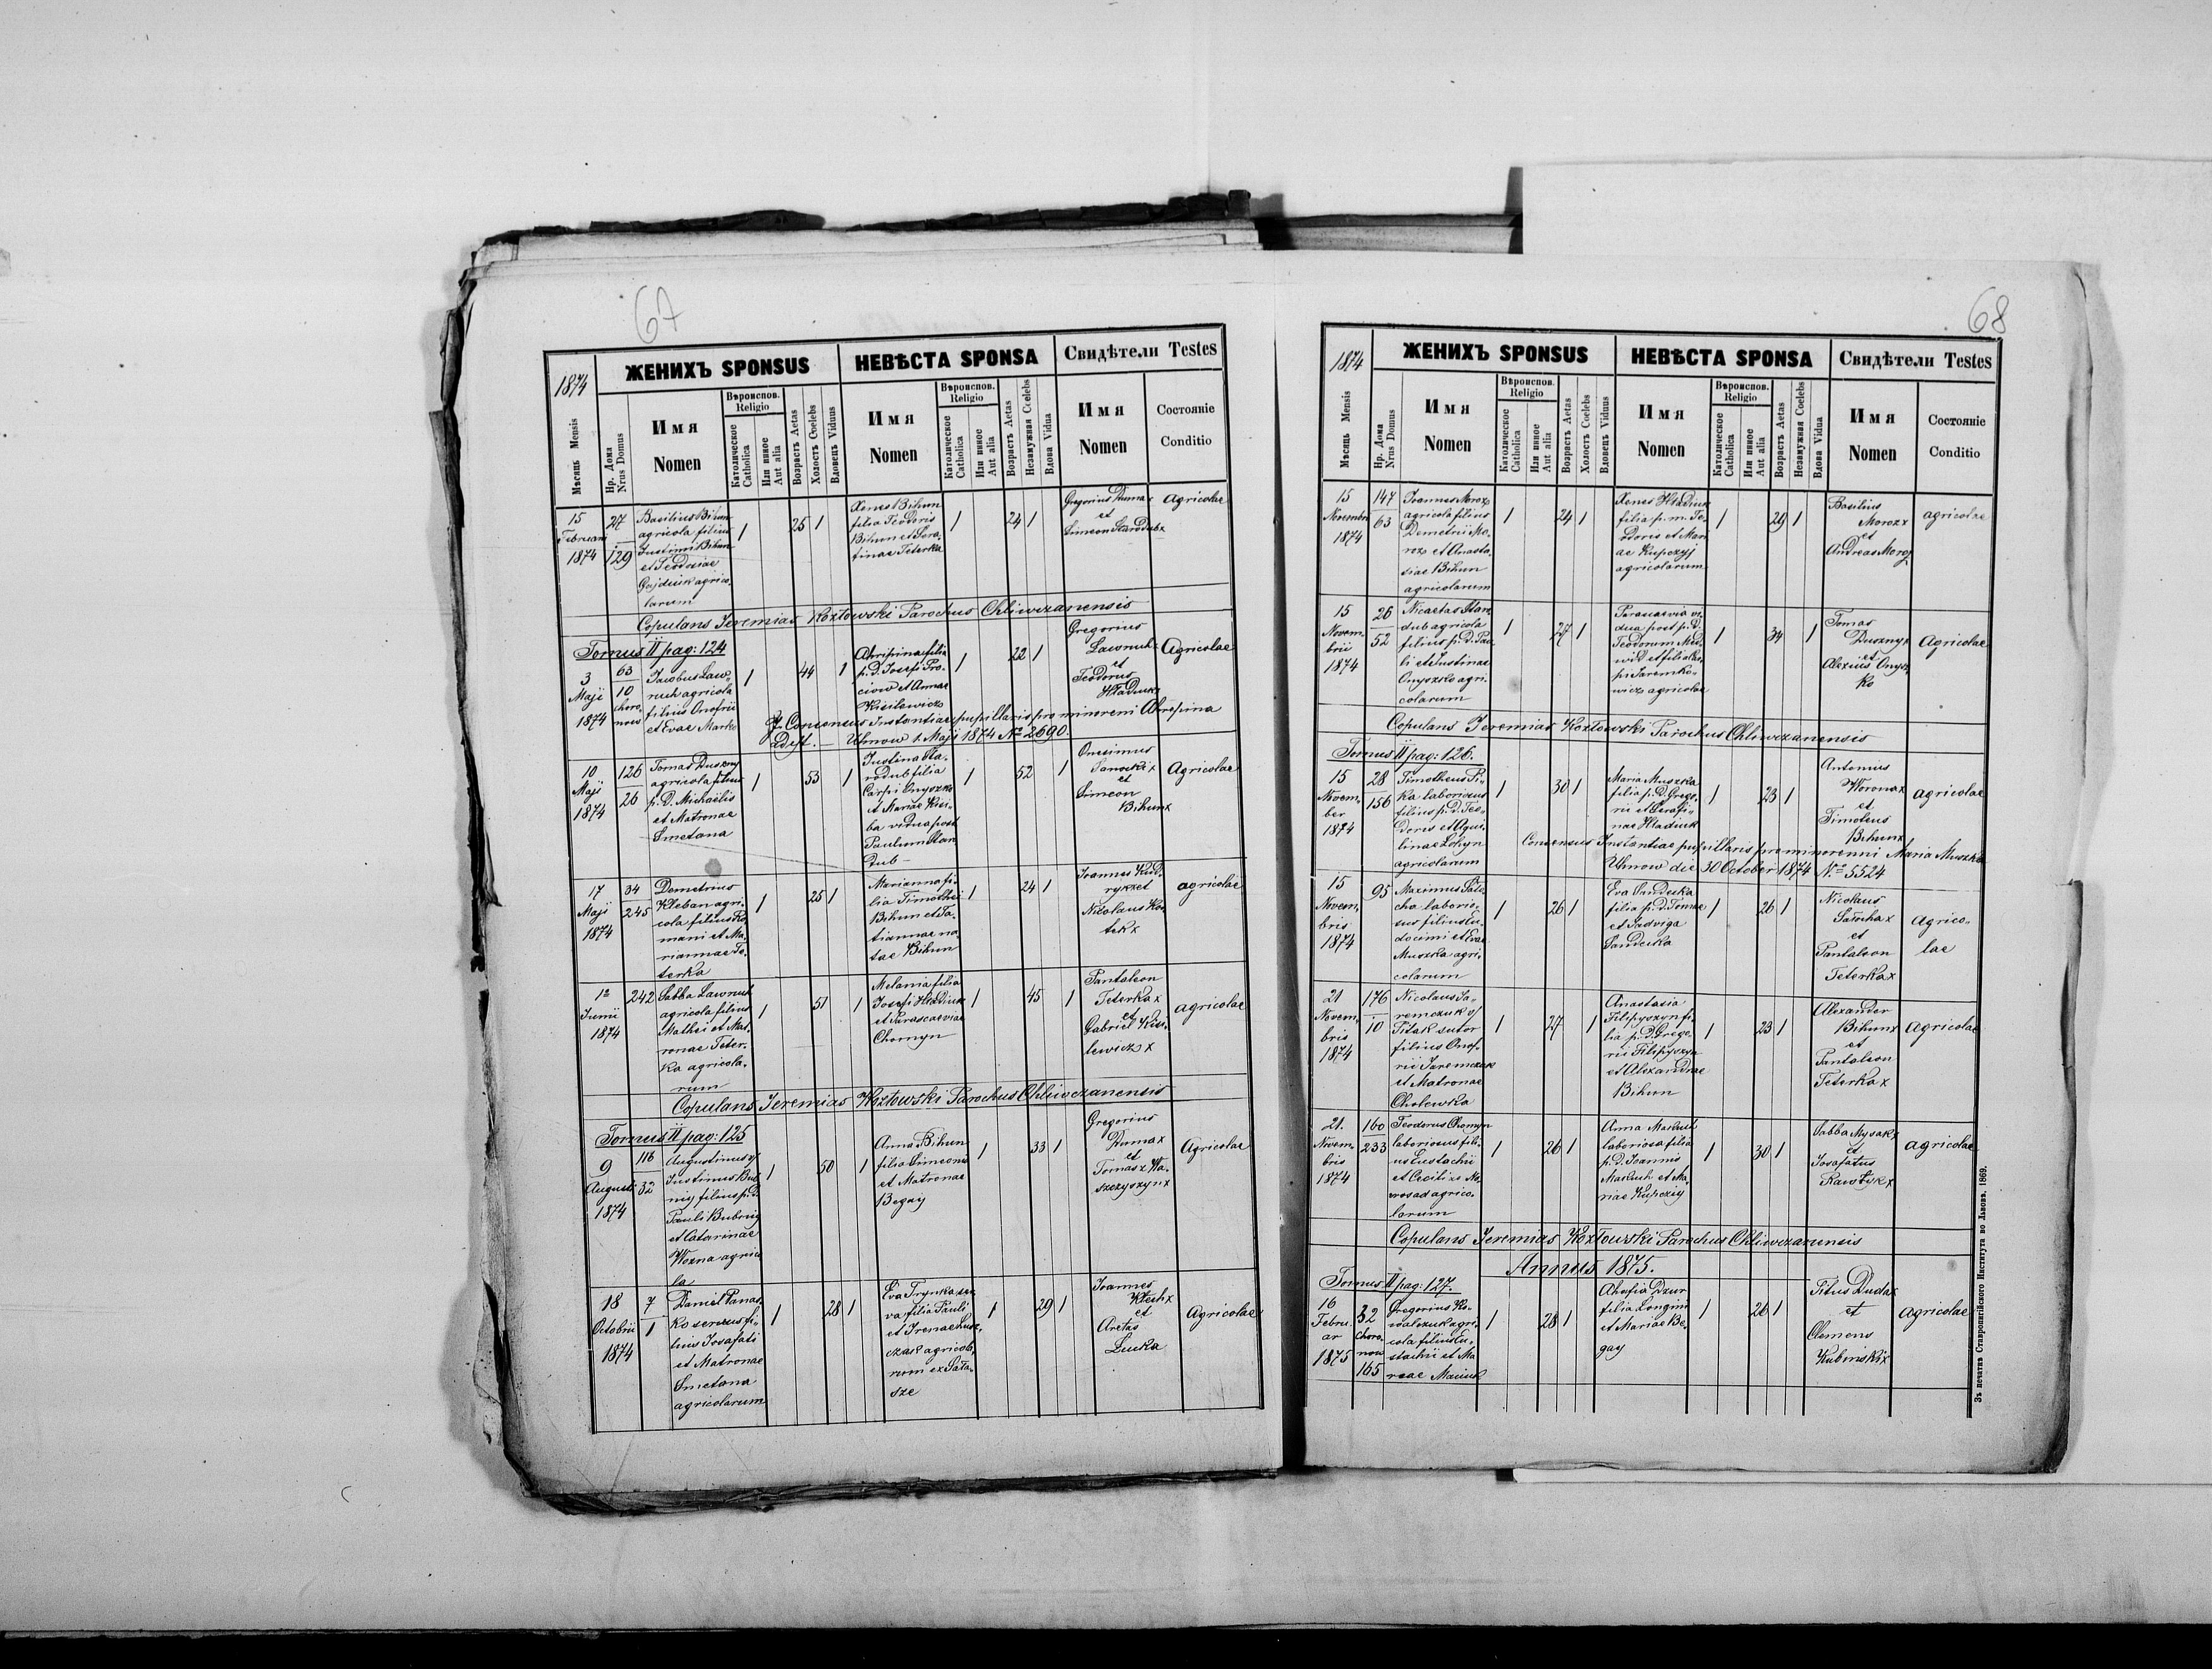 67
1874
ЖЕНИХЪ SPONSUS
НЕВѢСТА SPONSA
Свидѣтели Testes
Мѣсяць Mensis
Нр. Дома
Nrus Domus
Имя
Nomen
Вѣроиспов.
Religio
Католическое
Catholica
Или инное
Aut alia
Возрастъ Aetas
Холостъ Coelebs
Вдовецъ Viduus
Имя
Nomen
Вѣроиспов.
Religio
Католическое
Catholica
Или инное
Aut alia
Возрастъ Aetas
Незамужная Coelebs
Вдова Vidua
Имя
Nomen
Состояніе
Conditio
15
Februarii
1874
27
129
Basilius Bihun
agricola filius
Justinni Bihun
et Teodosiae
Gajdiuk agrico
larum
1
25
1
Xenes Bihun
filia Teodoris
Bihun et Sera
finae Teterka
1
24
1
Gregorius Duma x
et
Simeon Starodub x
Agricolae
Copulans Jeremias Kozłowski Parochus Chliwczanensis
Tomus II pag: 124
3
Maji
1874
63
10
Jacobus Law
ruch agricola
filius Onofrii
et Evae Marko
1
44
1
Ahripina filia
p. D. Josefi Pro
ciow et Annae
Kisilewicz
1
22
1
Gregorius
Lawruch x
et
Teodorus
Hładiuk x
Agricolae
Consensus Instantiae pupillaris pro minoreni Ahrepina
Uhnow 1. Maji 1874 No 2690.
10
Maji
1874
126
26
Tomas Duszny
agricola filius
p. D. Michaëlis
et Matronae
Smetana
1
53
1
Justina Sta
rodub filia
Carpi Onyszko
et Mariae Kisi
ba vidua post
Paulum Staro
dub
1
52
1
Onesimus
Sanocki x
et
Simeon
Bihun x
Agricolae
17
Maji
1874
34
245
Demetrius
Kleban agri
cola filius Ro
mani et Ma
riannae Te
terka
1
25
1
Marianna fi
lia Timothei
Bihun et Ta
tiannae na
tae Bihun
1
24
1
Joannes Kud
ryk x et
Nicolaus Ko
tek x
agricolae
12
Junii
1874
242
Sabba Lawruch
agricola filius
Mathei et Mat
ronae Teter
ka agricola
rum
1
51
1
Melania filia
Josefi Hładiuk
et Parascaeviae
Chomyn
1
45
1
Pantaleon
Teterka x
et
Gabriel Kisi
lewicz x
agricolae
Copulans Jeremias Kozłowski Parochus Chliwczanensis
Tomus II pag: 125
9
Augusti
1874
116
32
Augustinus
Justinus Bub
nij filius p. D.
Pauli Bubnij
et Catarinae
Wozna agrico
la
1
50
1
Anna Bihun
filia Simeonis
et Matronae
Begaij
1
33
1
Gregorius
Duma x
et
Tomas x Wa
szczyszyn x
Agricolae
18
Octobris
1874
7
1
Daniel Panas
ko servus fi
lius Josafati
et Matronae
Smetana
agricolarum
1
28
1
Eva Trynka ser
va filia Pauli
et Irenae Łusz
czak agricola
rum ex Sała
sze
1
29
1
Joannes
Klech x
et
Aretas
Lucka
Agricolae
68
1874
ЖЕНИХЪ SPONSUS
НЕВѢСТА SPONSA
Свидѣтели Testes
Мѣсяць Mensis
Нр. Дома
Nrus Domus
Имя
Nomen
Вѣроиспов.
Religio
Католическое
Catholica
Или инное
Aut alia
Возрастъ Aetas
Холостъ Coelebs
Вдовецъ Viduus
Имя
Nomen
Вѣроиспов.
Religio
Католическое
Catholica
Или инное
Aut alia
Возрастъ Aetas
Незамужная Coelebs
Вдова Vidua
Имя
Nomen
Состояніе
Conditio
15
Novembri
1874
147
63
Joannes Moroz
agricola filius
Demetrii Mo
roz et Anasta
siae Bihun
agricolarum
1
24
1
Xenes Hładiuk
filia p. m. Te
odoris et Mari
ae Kupczyj
agricolarum
1
29
1
Basilius
Moroz x
et
Andreas Moroz
agricolae
15
Novem
bris
1874
26
52
Nicaetas Staro
dub agricola
filius p. D. Pau
li et Justinae
Onyszko agri
colarum
1
27
1
Parascaevia vi
dua post p. D.
Teodorum Med
wid et filia
Jaremko
wicz agricolae
1
34
1
Tomas
Duszny x
et
Alexius Onysz
ko
Agricolae
Copulans Jeremias Kozłowski Parochus Chliwczanensis
Tomus II pag: 126.
15
Novem
ber
1874
28
156
Timotheus Pi
ka laboriosus
filius p. D. Teo
doris et Aqui
linae Lohyn
agricolarum
1
30
1
Maria Muszka
filia p. D. Grego
rii et Serafi
nae Hładiuk
1
23
1
Antonius
Worona x
et
Timoteus
Bihun x
agricolae
Consensus Instantiae pupillaris pro minorenni Maria Muszka
Uhnow die 30 October 1874 No 5524
15
Novem
bris
1874
95
Maximus Sała
cha laborio
sus filius Eu
docimi et Evae
Muszka agri
colarum
1
26
1
Eva Sandecka
filia p. D. Tomae
et Jadviga
Sandecka
1
26
1
Nicolaus
Sałacha x
et
Pantaleon
Teterka x
Agrico
lae
21
Novem
bris
1874
176
10
Nicolaus Ja
remczuk
Pitak sutor
filius Onof
rii Jaremczuk
et Matronae
Cholewka
1
27
1
Anastasia
Filipyszyn fi
lia p. D. Grego
rii Filipyszyn
et Alexandrae
Bihun
1
23
1
Alexander
Bihun x
et
Pantaleon
Teterka x
Agricolae
21.
Novem
bris
1874
160
233
Teodorus Chomyn
laboriosus fili
us Eustachii
et Cecilize No
wosad agrico
larum
1
26
1
Anna Masluch
laboriosa filia
p. D. Joannis
Masluch et Ma
riae Kupczij
1
30
1
Sabba Mysak x
et
Josafatus
Kawtyk x
agricolae
Copulans Jeremias Kozłowski Parochus Chliwczanensis
Annus 1875.
Tomus II pag: 127.
16
Febru
ar
1875
32
Choro
now
165
Gregorius Ko
walczuk agri
cola filius Eu
stachii et Ma
riae
1
28
1
Ahafia Dzur
filia Longini
et Mariae Be
gay
1
26
1
Titus Duda x
et
Clemens
Kubinski x
Agricolae
Зъ печатнѣ Ставропигійского Института во Львовѣ. 1869.